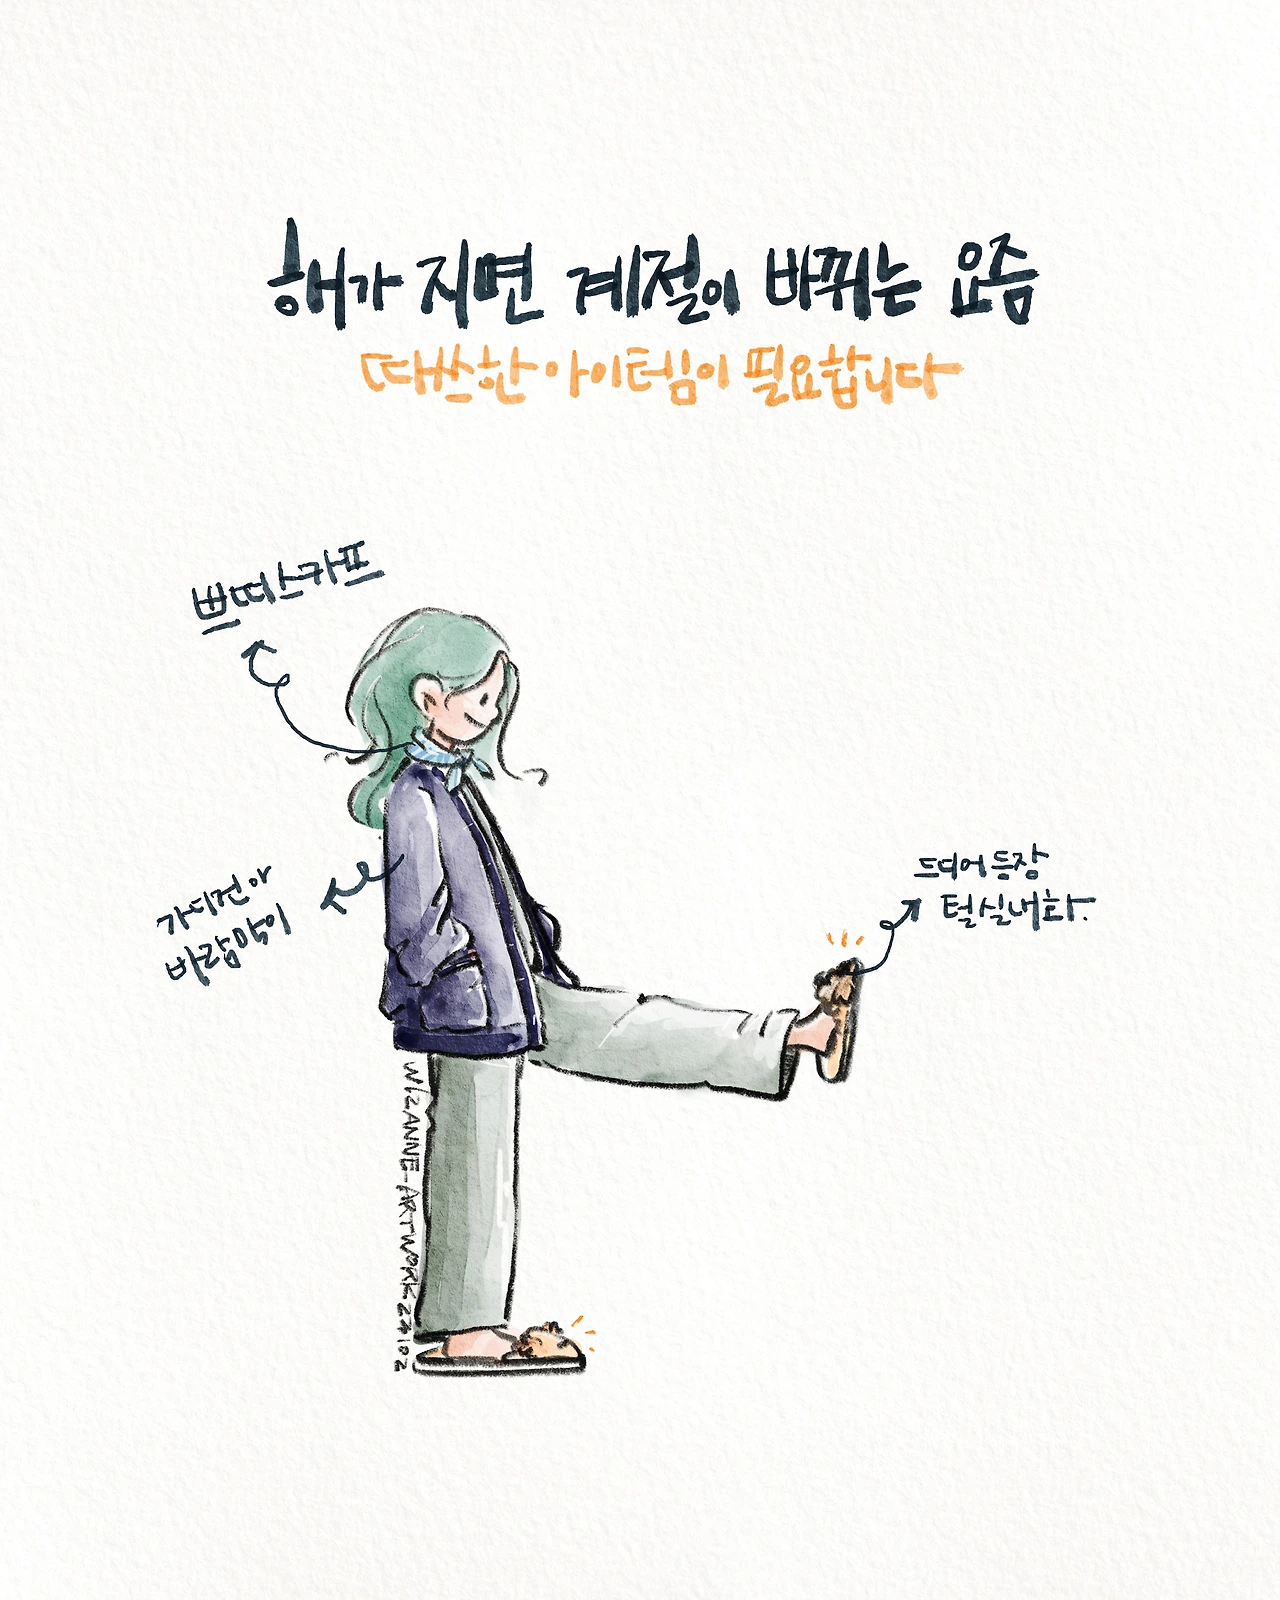 해가 지면 계절이 바뀌는 요즘
따쓰한 아이템이 필요합니다
쁘띠스카프
가디건아
바람막이
드디어 등장
털실내화.
WIZANNE-ARTWORK 24102